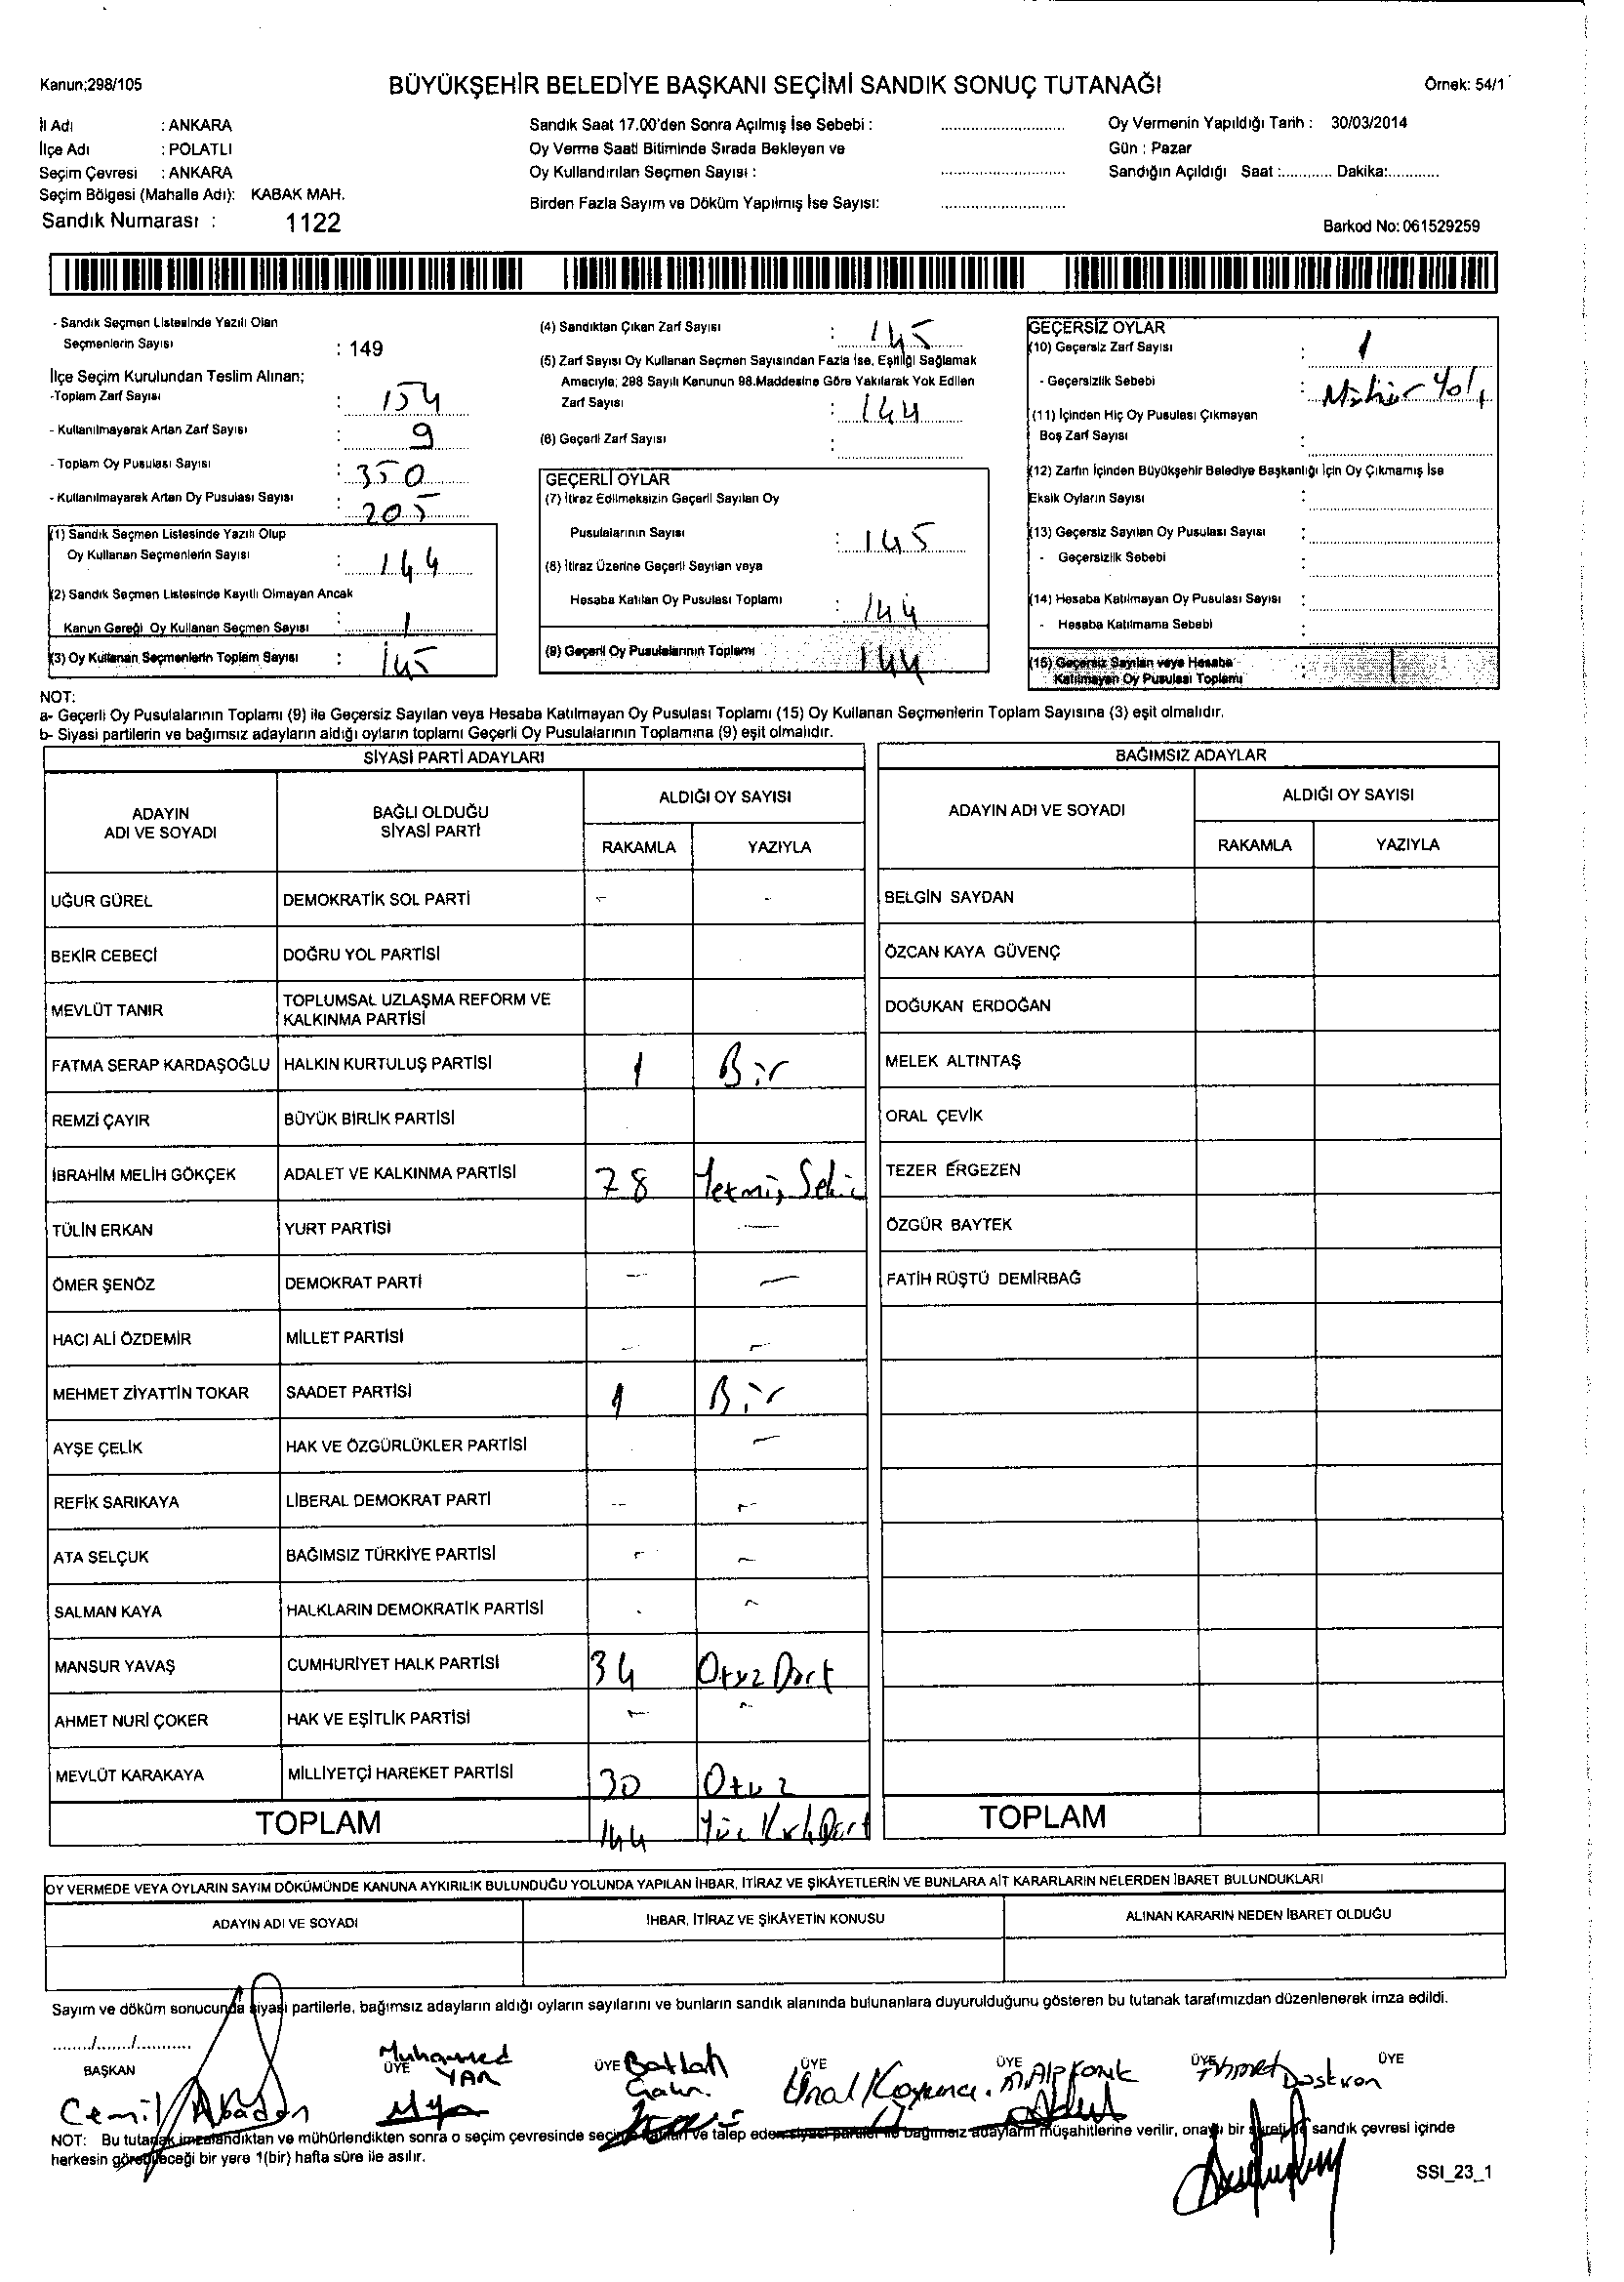 Kanun:298/105
BÜYÜKŞEHİR BELEDİYE BAŞKANI SEÇİMİ SANDIK SONUÇ TUTANAĞI
Örnek: 54/1
İl Adı : ANKARA
İlçe Adı : POLATLI
Seçim Çevresi : ANKARA
Seçim Bölgesi (Mahalle Adı): KABAK MAH.
Sandık Numarası : 1122
Sandık Saat 17.00'den Sonra Açılmış İse Sebebi :
Oy Verme Saati Bitiminde Sırada Bekleyen ve
Oy Kullandırılan Seçmen Sayısı :
Birden Fazla Sayım ve Döküm Yapılmış İse Sayısı:
Oy Vermenin Yapıldığı Tarih : 30/03/2014
Gün : Pazar
Sandığın Açıldığı Saat :............ Dakika:............
Barkod No: 061529259
- Sandık Seçmen Listesinde Yazılı Olan
Seçmenlerin Sayısı : 149
İlçe Seçim Kurulundan Teslim Alınan;
-Toplam Zarf Sayısı : 154
- Kullanılmayarak Artan Zarf Sayısı : 9
- Toplam Oy Pusulası Sayısı : 350
- Kullanılmayarak Artan Oy Pusulası Sayısı : 205
(1) Sandık Seçmen Listesinde Yazılı Olup
Oy Kullanan Seçmenlerin Sayısı : 144
(2) Sandık Seçmen Listesinde Kayıtlı Olmayan Ancak
Kanun Gereği Oy Kullanan Seçmen Sayısı : 1
(3) Oy Kullanan Seçmenlerin Toplam Sayısı : 145
(4) Sandıktan Çıkan Zarf Sayısı : 145
(5) Zarf Sayısı Oy Kullanan Seçmen Sayısından Fazla İse, Eşitliği Sağlamak
Amacıyla; 298 Sayılı Kanunun 98.Maddesine Göre Yakılarak Yok Edilen
Zarf Sayısı : 144
(6) Geçerli Zarf Sayısı :
GEÇERLİ OYLAR
(7) İtiraz Edilmeksizin Geçerli Sayılan Oy
Pusulalarının Sayısı : 145
(8) İtiraz Üzerine Geçerli Sayılan veya
Hesaba Katılan Oy Pusulası Toplamı : 144
(9) Geçerli Oy Pusulalarının Toplamı 144
GEÇERSİZ OYLAR
(10) Geçersiz Zarf Sayısı : 1
- Geçersizlik Sebebi : Mühür Yok
(11) İçinden Hiç Oy Pusulası Çıkmayan
Boş Zarf Sayısı :
(12) Zarfın İçinden Büyükşehir Belediye Başkanlığı İçin Oy Çıkmamış İse
Eksik Oyların Sayısı :
(13) Geçersiz Sayılan Oy Pusulası Sayısı :
- Geçersizlik Sebebi :
(14) Hesaba Katılmayan Oy Pusulası Sayısı :
- Hesaba Katılmama Sebebi :
(15) Geçersiz Sayılan veya Hesaba
Katılmayan Oy Pusulası Toplamı : 1
NOT:
a- Geçerli Oy Pusulalarının Toplamı (9) ile Geçersiz Sayılan veya Hesaba Katılmayan Oy Pusulası Toplamı (15) Oy Kullanan Seçmenlerin Toplam Sayısına (3) eşit olmalıdır.
b- Siyasi partilerin ve bağımsız adayların aldığı oyların toplamı Geçerli Oy Pusulalarının Toplamına (9) eşit olmalıdır.
SİYASİ PARTİ ADAYLARI
ADAYIN ADI VE SOYADI BAĞLI OLDUĞU SİYASİ PARTİ ALDIĞI OY SAYISI
RAKAMLA YAZIYLA
UĞUR GÜREL DEMOKRATİK SOL PARTİ - -
BEKİR CEBECİ DOĞRU YOL PARTİSİ
MEVLÜT TANIR TOPLUMSAL UZLAŞMA REFORM VE KALKINMA PARTİSİ
FATMA SERAP KARDAŞOĞLU HALKIN KURTULUŞ PARTİSİ 1 Bir
REMZİ ÇAYIR BÜYÜK BİRLİK PARTİSİ
İBRAHİM MELİH GÖKÇEK ADALET VE KALKINMA PARTİSİ 78 Yetmiş Sekiz
TÜLİN ERKAN YURT PARTİSİ -
ÖMER ŞENÖZ DEMOKRAT PARTİ - -
HACI ALİ ÖZDEMİR MİLLET PARTİSİ - -
MEHMET ZİYATTİN TOKAR SAADET PARTİSİ 1 Bir
AYŞE ÇELİK HAK VE ÖZGÜRLÜKLER PARTİSİ -
REFİK SARIKAYA LİBERAL DEMOKRAT PARTİ - -
ATA SELÇUK BAĞIMSIZ TÜRKİYE PARTİSİ - -
SALMAN KAYA HALKLARIN DEMOKRATİK PARTİSİ - -
MANSUR YAVAŞ CUMHURİYET HALK PARTİSİ 34 Otuz Dört
AHMET NURİ ÇOKER HAK VE EŞİTLİK PARTİSİ - -
MEVLÜT KARAKAYA MİLLİYETÇİ HAREKET PARTİSİ 30 Otuz
TOPLAM 144 Yüz Kırk Dört
BAĞIMSIZ ADAYLAR
ADAYIN ADI VE SOYADI ALDIĞI OY SAYISI
RAKAMLA YAZIYLA
BELGİN SAYDAN
ÖZCAN KAYA GÜVENÇ
DOĞUKAN ERDOĞAN
MELEK ALTINTAŞ
ORAL ÇEVİK
TEZER ERGEZEN
ÖZGÜR BAYTEK
FATİH RÜŞTÜ DEMİRBAĞ
TOPLAM
OY VERMEDE VEYA OYLARIN SAYIM DÖKÜMÜNDE KANUNA AYKIRILIK BULUNDUĞU YOLUNDA YAPILAN İHBAR, İTİRAZ VE ŞİKÂYETLERİN VE BUNLARA AİT KARARLARIN NELERDEN İBARET BULUNDUKLARI
ADAYIN ADI VE SOYADI İHBAR, İTİRAZ VE ŞİKÂYETİN KONUSU ALINAN KARARIN NEDEN İBARET OLDUĞU
Sayım ve döküm sonucunda siyasi partilerle, bağımsız adayların aldığı oyların sayılarını ve bunların sandık alanında bulunanlara duyurulduğunu gösteren bu tutanak tarafımızdan düzenlenerek imza edildi.
......../......../............
BAŞKAN ÜYE ÜYE ÜYE ÜYE ÜYE ÜYE
Cemil Muhammed YAR Ünal Ahmet
NOT: Bu tutanak imzalandıktan ve mühürlendikten sonra o seçim çevresinde seçime katılan ve talep eden siyasi partiler ile bağımsız adayların müşahitlerine verilir, onaylı bir sureti de sandık çevresi içinde
herkesin görebileceği bir yere 1(bir) hafta süre ile asılır.
SSI_23_1